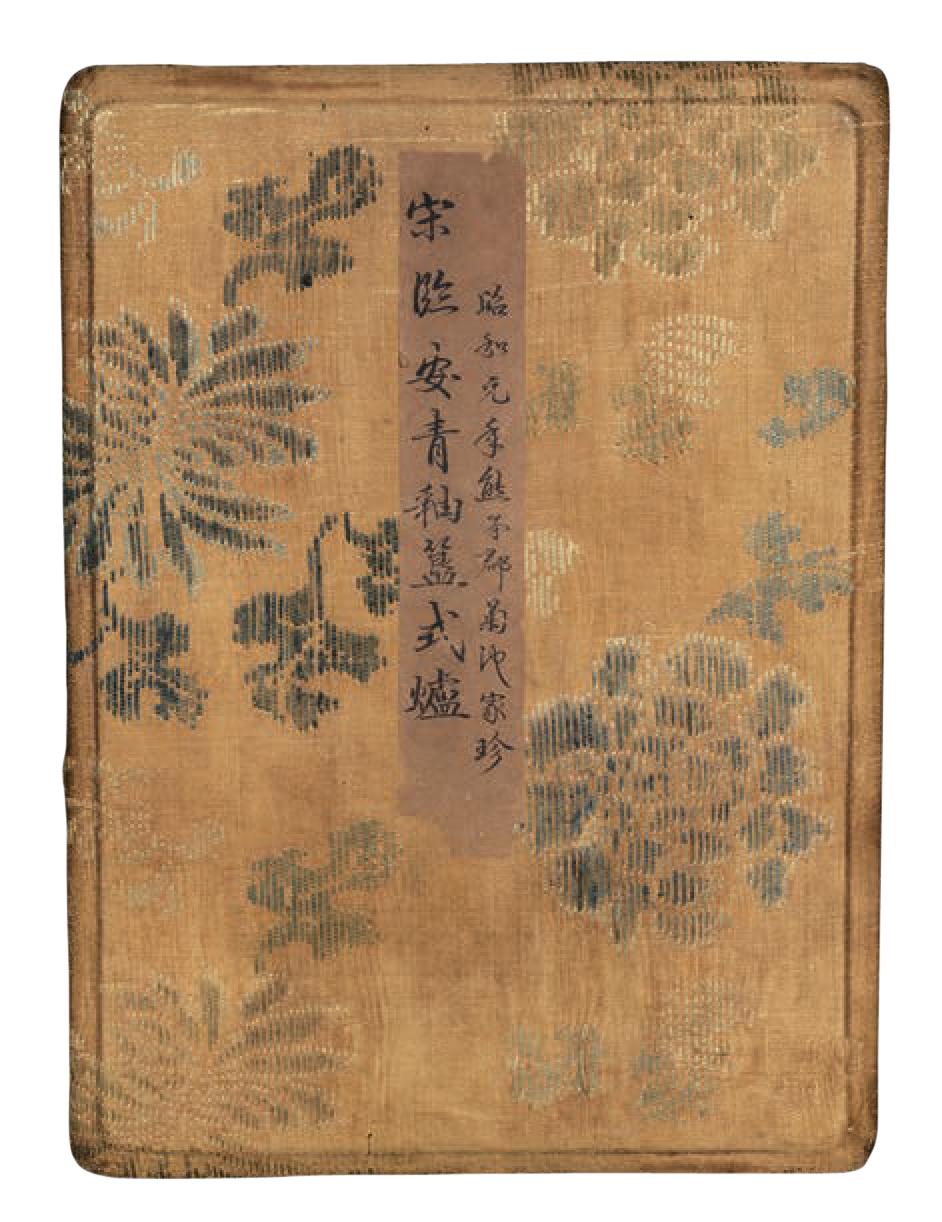 昭和元年熊本郡菊池家珍
宋臨安青釉簋式爐